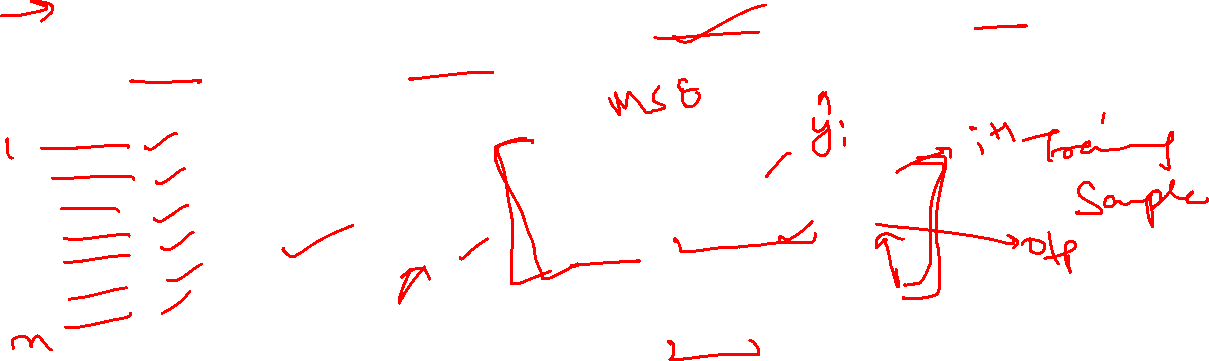 mse
ŷi
1
ith Training
Sample
o/p
m